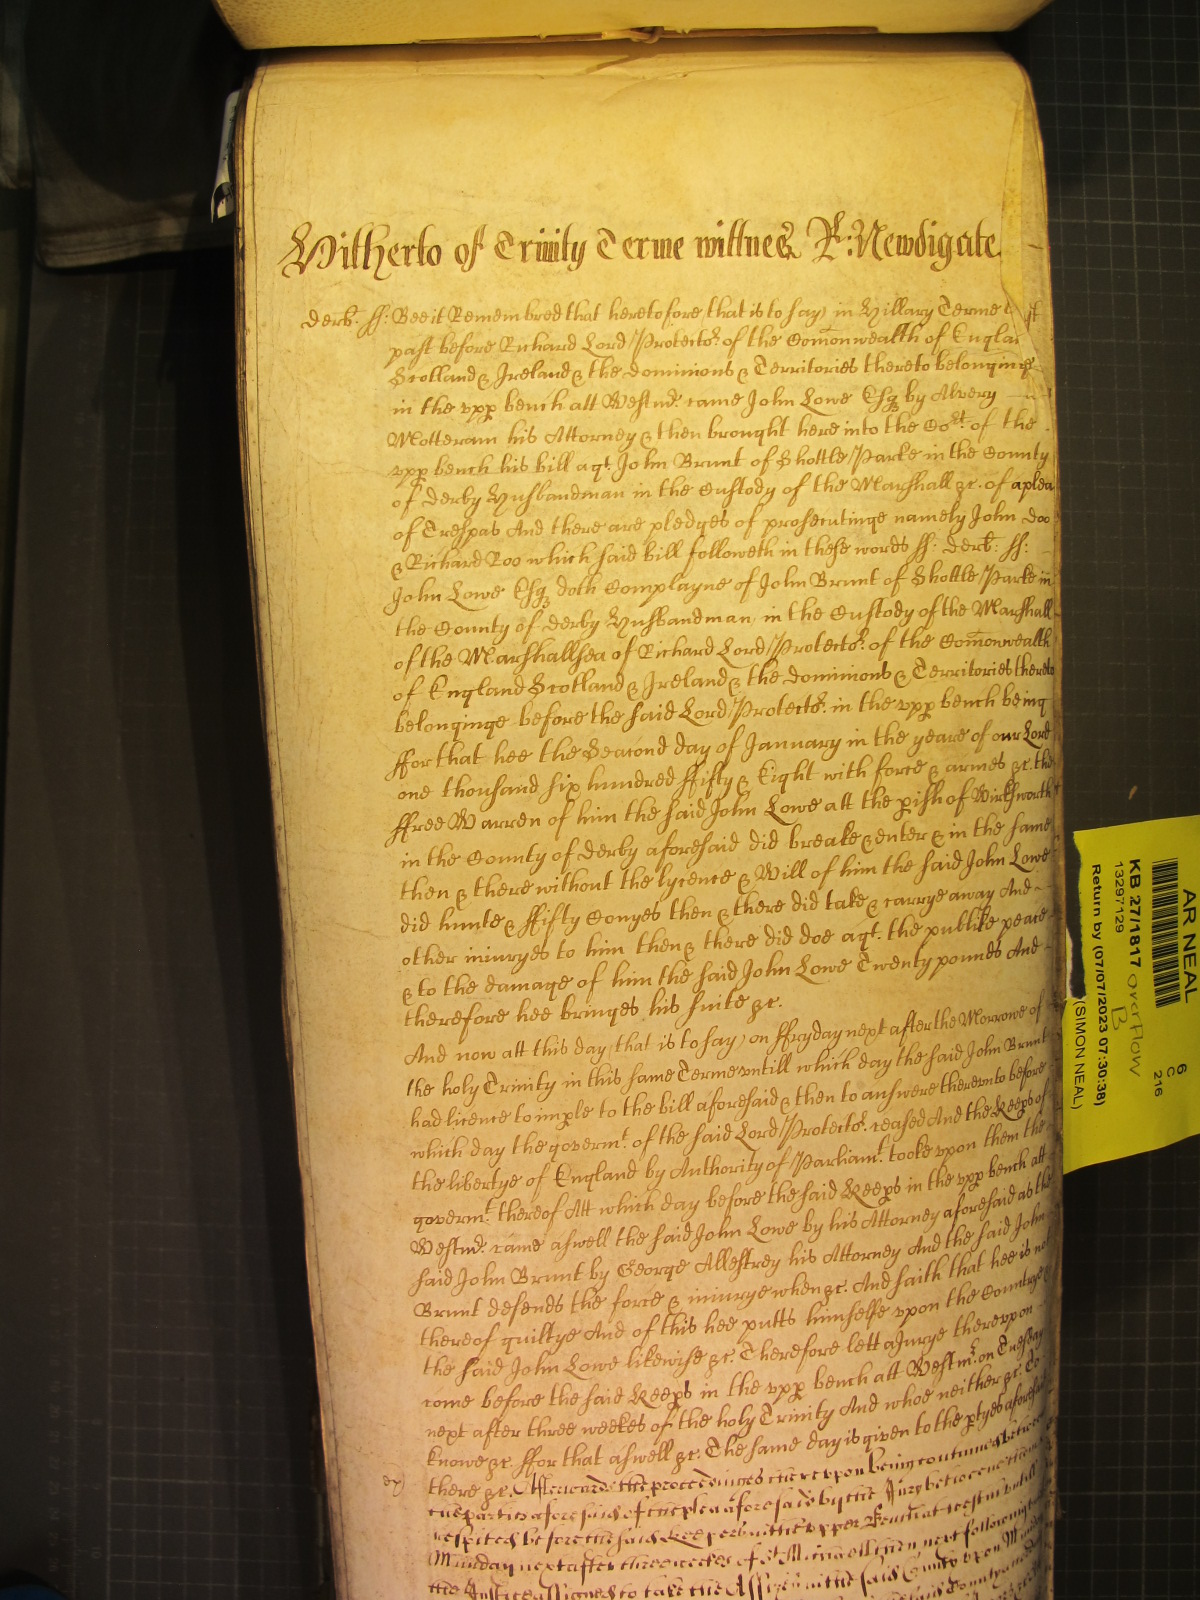 Hitherto of Trinity Terme wittnes R: Newdigate
derb. ss: Bee it Remembred that heretofore, that is to say, in Hillary Terme
past before Richard Lord Protector. of the Comonwealth of Englan
Scotland & Ireland & the dominions & Territories thereto belonginge
in the upp bench att Westmr. came John Lowe Esq by Alvery
Motteram his Attorney & then brought here into the Cort. of the
upp bench his bill agt. John Brunt of Shottle Parke in the County
of derby Husbandman in the Custody of the Marshall &c. of a plea
of Trespas And there are pledges of prosecutinge namely John Doo
& Richard Roo which said bill followeth in these words ss: derb: ss:
John Lowe Esq doth Complayne of John Brunt of Shottle Parke in
the County of derby Husbandman, in the Custody of the Marshall
of the Marshallsea of Richard Lord Protector. of the Comonwealth
of England Scotland & Ireland & the dominions & Territories thereto
belonginge before the said Lord Protector. in the upp bench being
ffor that hee the Seacond day of January in the yeare of our Lord
one thousand six hundred ffifty & Eight with force & armes &c. the
ffree Warren of him the said John Lowe att the pish of Wirksworth
in the County of derby aforesaid did breake & enter & in the same
then & there without the lycence & Will of him the said John Lowe
did hunte & ffifty Conyes then & there did take & carrye away And
other iniuryes to him then & there did doe agt. the publike peace
& to the damage of him the said John Lowe Twenty pounds And
therefore hee bringes his suite &c.
And now att this day, that is to say, on ffryday next after the Morrowe of
the holy Trinity in this same Terme untill which day the said John Brunt
had licence to imple to the bill aforesaid & then to answere thereunto before
which day the govermt. of the said Lord Protector. ceased And the Keeps of
the libertye of England by Authority of Parliamt. tooke upon them the
govermt. thereof Att which day before the said Keeps in the upp bench att
Westmr. came aswell the said John Lowe by his Attorney aforesaid as the
said John Brunt by George Allestrey his Attorney And the said John
Brunt defends the force & iniurye when &c. And saith that hee is not
thereof guiltye And of this hee putts himselfe upon the Countrye &
the said John Lowe likewise &c. Therefore lett a Jurye thereupon
come before the said Keeps in the upp bench att Westmr. on Tuesday
next after three weekes of the holy Trinity And whoe neither &c. To
knowe &c. ffor that aswell &c. The same day is given to the ptyes aforesaid
ex) there &c. Afterwards the proceedinges thereupon being continued betweene
the parties aforesaid of the plea aforesaid by the Jury betweene them
respited before the said Keepers in the upper Bench at Westmr untill
Munday next after three weekes of St Michaell then next followinge
the Justices assigned to take the Assizes in the said County upon